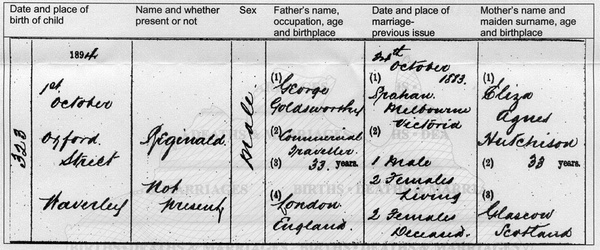 Date and place of birth of child
Name and whether present or not
Sex
Father's name, occupation, age and birthplace
Date and place of marriage- previous issue
Mother's name and maiden surname, age and birthplace
323
1894
1st
October
Oxford
Street
Waverley
Reginald.
Not
present
Male
(1)
George
Goldsworthy
(2) Commercial
Traveller
(3) 33 years.
(4) London
England.
24th
October
(1) 1883.
Prahan
Melbourne
Victoria
(2)
1 Male
2 Females
Living
2 Females
Deceased.
(1)
Eliza
Agnes
Hutchison
(2) 33 years
(3)
Glascow
Scotland
MARRIAGES BIRTHS DEATHS & MARRIAGES